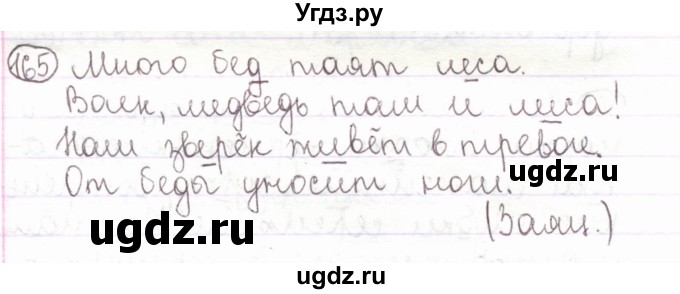 Угдз.ру
165 Много бед таят леса.
Волк, медведь там и лиса!
Наш зверёк живёт в тревоге.
От беды уносит ноги.
(Заяц.)
угдз.ру
угдз.ру
ugdz.ru
ugdz.ru
ugdz.ru